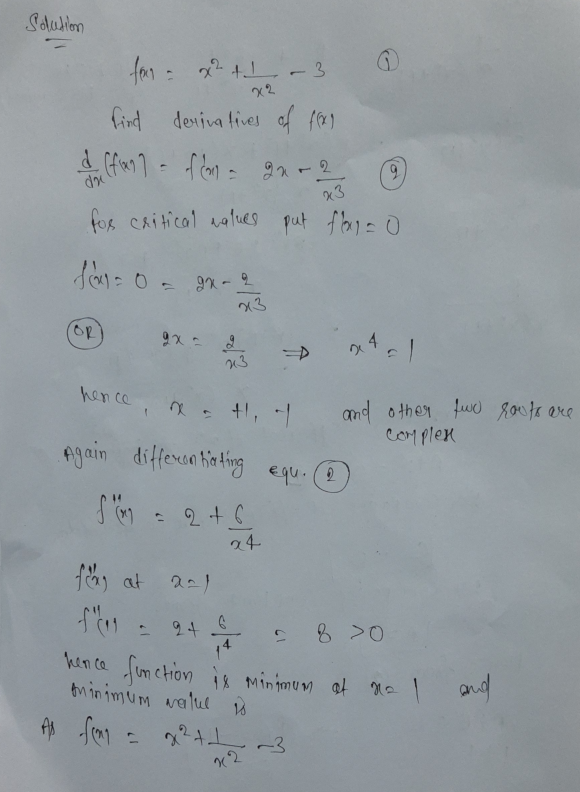 Solution
f(x) = x² + 1/x² - 3 (1)
find derivatives of f(x)
d/dx [f(x)] = f'(x) = 2x - 2/x³ (2)
for critical values put f'(x) = 0
f'(x) = 0 = 2x - 2/x³
(OR) 2x = 2/x³ ⇒ x⁴ = 1
hence, x = +1, -1 and other two roots are complex
Again differentiating equ. (2)
f''(x) = 2 + 6/x⁴
f''(x) at x=1
f''(1) = 2 + 6/1⁴ = 8 > 0
hence function is minimum at x = 1 and
minimum value is
As f(x) = x² + 1/x² - 3